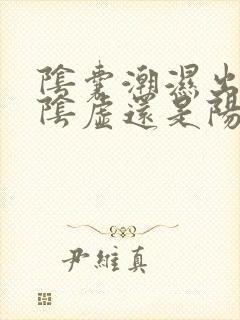 陰囊潮濕出
陰虛還是陽
尹維真